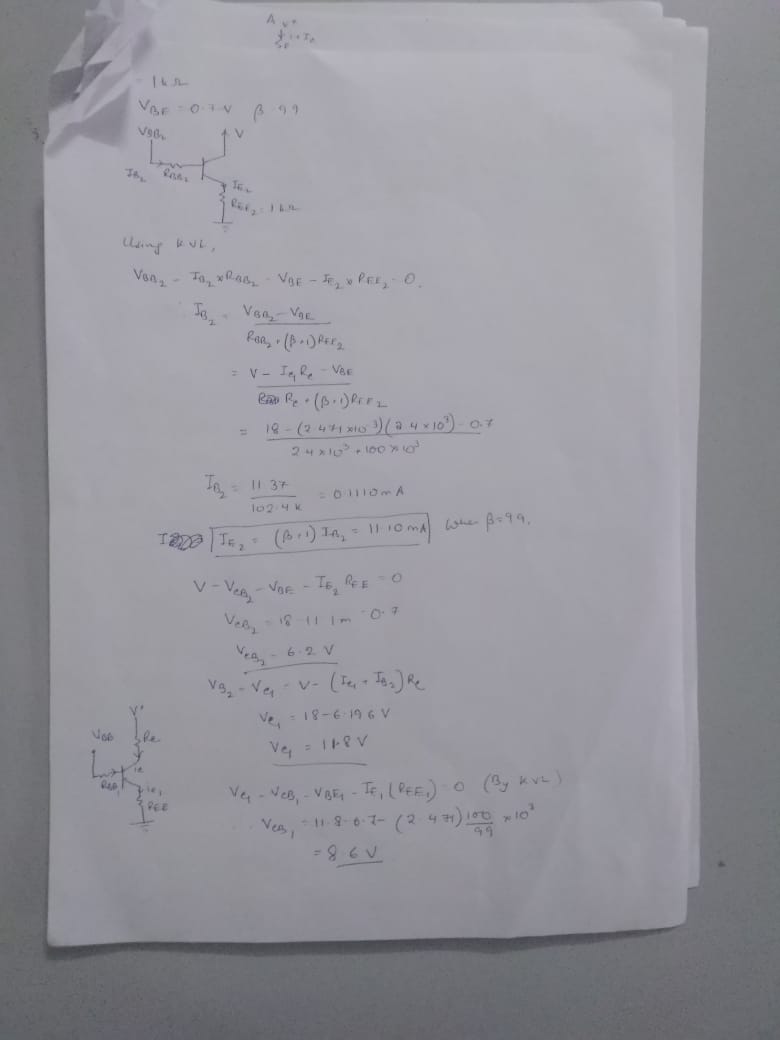 = 1kΩ
V_BE = 0.7V β = 99
V_BB₂
V
I_B₂ R_BB₂
I_E₂
R_EE₂ = 1kΩ
Using KVL,
V_BB₂ - I_B₂ × R_BB₂ - V_BE - I_E₂ × R_EE₂ = 0.
I_B₂ = V_BB₂ - V_BE
R_BB₂ + (β+1) R_EE₂
= V - I_C₁ R_C - V_BE
R_C + (β+1) R_EE₂
= 18 - (2.471×10⁻³)(2.4×10³) - 0.7
2.4×10³ + 100×10³
I_B₂ = 11.37 = 0.1110mA
102.4K
I_E₂ = (β+1) I_B₂ = 11.10 mA when β=99.
V - V_CB₂ - V_BE - I_E₂ R_EE = 0
V_CB₂ = 18 - 11.1m - 0.7
V_CB₂ = 6.2 V
V_B₂ = V_C₁ = V - (I_C₁ + I_B₂) R_C
V_C₁ = 18 - 6.196 V
V_C₁ = 11.8 V
V⁺
V_BB
R_C
i_C
R_BB₁
i_E₁
R_EE
V_C₁ - V_CB₁ - V_BE₁ - I_E₁ (R_EE₁) = 0 (By KVL)
V_CB₁ = 11.8 - 0.7 - (2.471) 100/99 × 10³
= 8.6 V